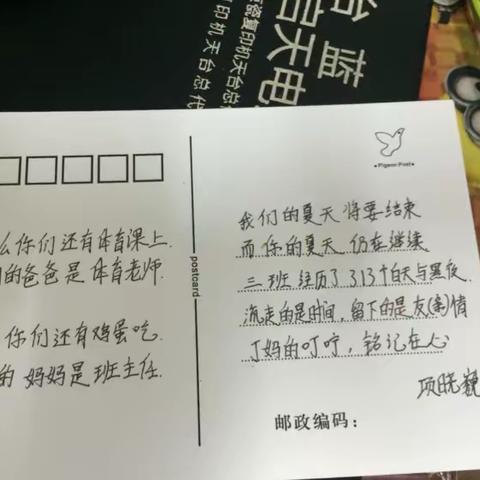 台 蓝
启天电
瓷复印机天台总代
印机天台总代
Pigeon Post
么你们还有体育课上.
的爸爸是体育老师.
你们还有鸡蛋吃.
的 妈妈是班主任.
postcard
我们的夏天 将要结束
而 你的夏天 仍在继续
三班 经历了 313个白天与黑夜
流走的是时间, 留下的是友(亲)情
丁妈的叮咛, 铭记在心
项晓巍
邮政编码：